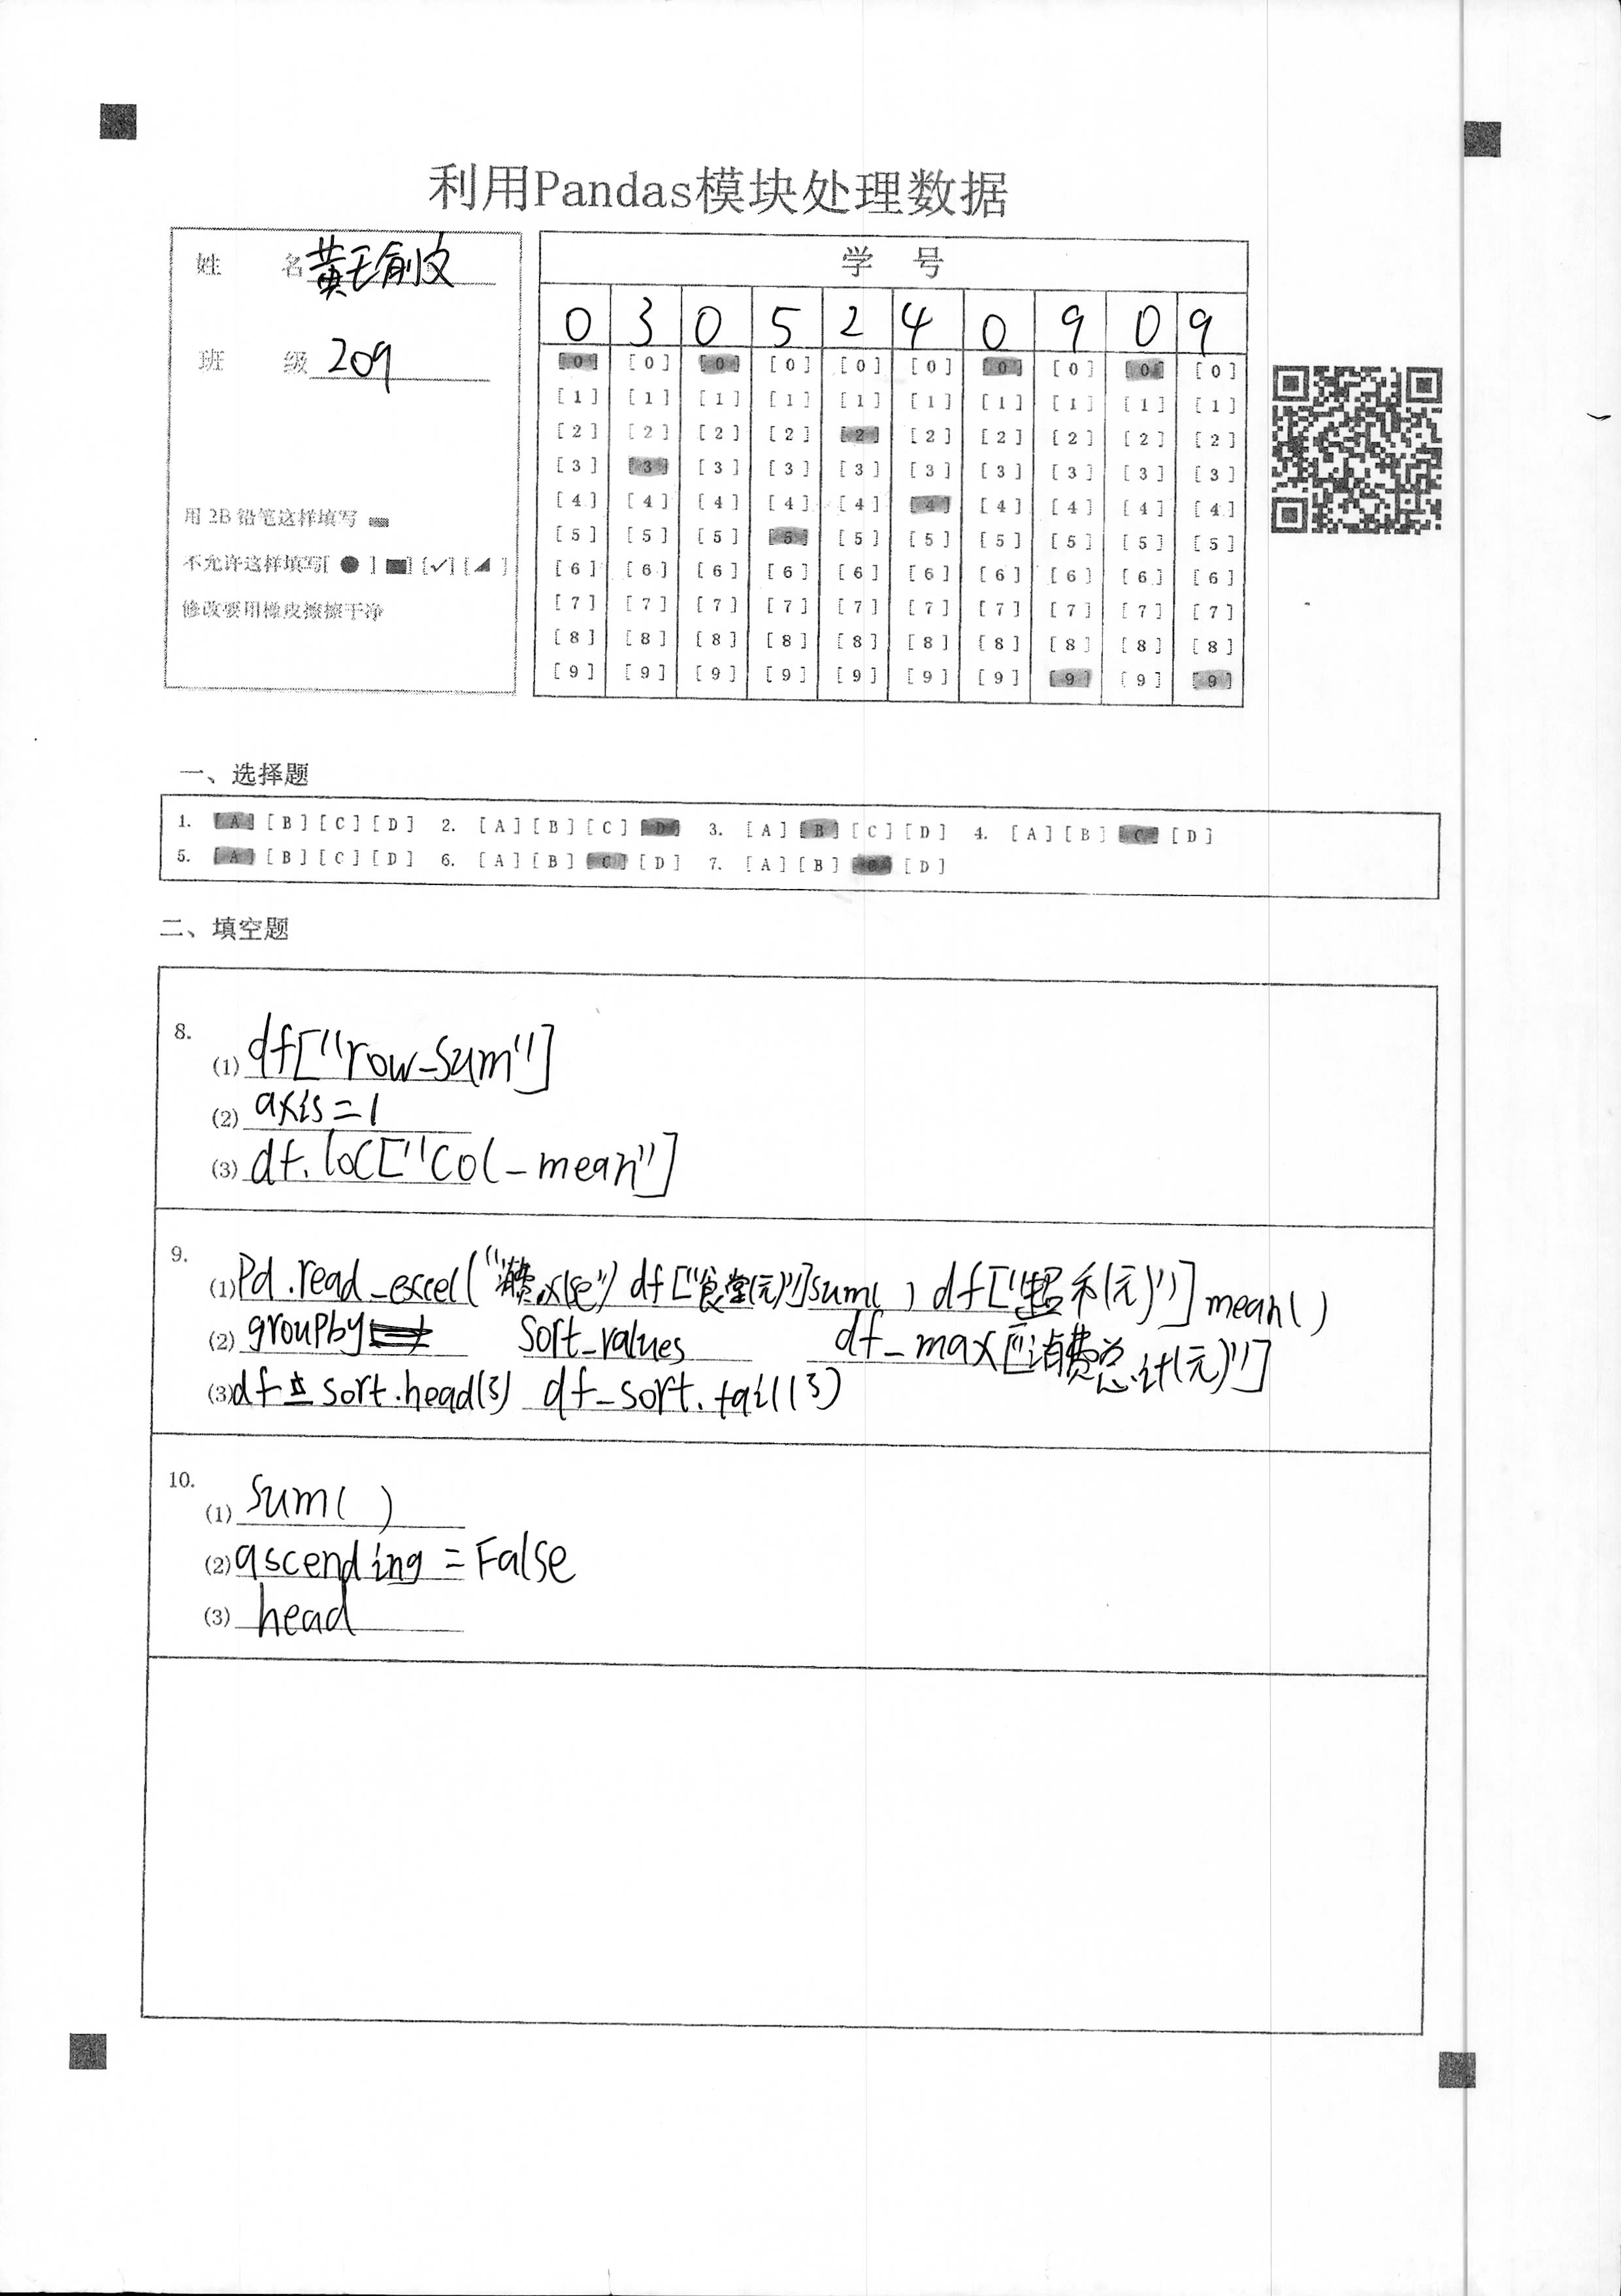 利用Pandas模块处理数据
姓 名 黄毛俞皮
班 级 209
用 2B 铅笔这样填写
不允许这样填写[ ● ] [ ✓ ] [ ◢ ]
修改要用橡皮擦擦干净
学 号
0 3 0 5 2 4 0 9 0 9
[0] [0] [0] [0] [0] [0] [0] [0] [0] [0]
[1] [1] [1] [1] [1] [1] [1] [1] [1] [1]
[2] [2] [2] [2] [2] [2] [2] [2] [2] [2]
[3] [3] [3] [3] [3] [3] [3] [3] [3] [3]
[4] [4] [4] [4] [4] [4] [4] [4] [4] [4]
[5] [5] [5] [5] [5] [5] [5] [5] [5] [5]
[6] [6] [6] [6] [6] [6] [6] [6] [6] [6]
[7] [7] [7] [7] [7] [7] [7] [7] [7] [7]
[8] [8] [8] [8] [8] [8] [8] [8] [8] [8]
[9] [9] [9] [9] [9] [9] [9] [9] [9] [9]
一、选择题
1. [A] [B] [C] [D] 2. [A] [B] [C] [D] 3. [A] [B] [C] [D] 4. [A] [B] [C] [D]
5. [A] [B] [C] [D] 6. [A] [B] [C] [D] 7. [A] [B] [C] [D]
二、填空题
8.
(1) df["row_sum"]
(2) axis=1
(3) df.loc["col_mean"]
9.
(1) Pd.read_excel("消费.xlse") df["食堂(元)"]sum() df["超禾(元)"]mean()
(2) groupby sort_values df_max["消费总计(元)"]
(3) df sort.head(3) df_sort.tail(3)
10.
(1) sum( )
(2) ascending = False
(3) head